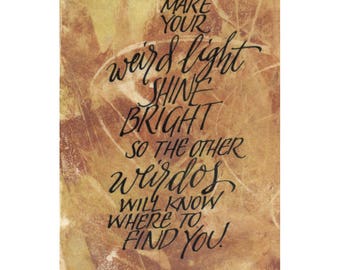 MAKE
YOUR
weird light
SHINE
BRIGHT
SO THE OTHER
weirdos
WILL KNOW
WHERE TO
FIND YOU.